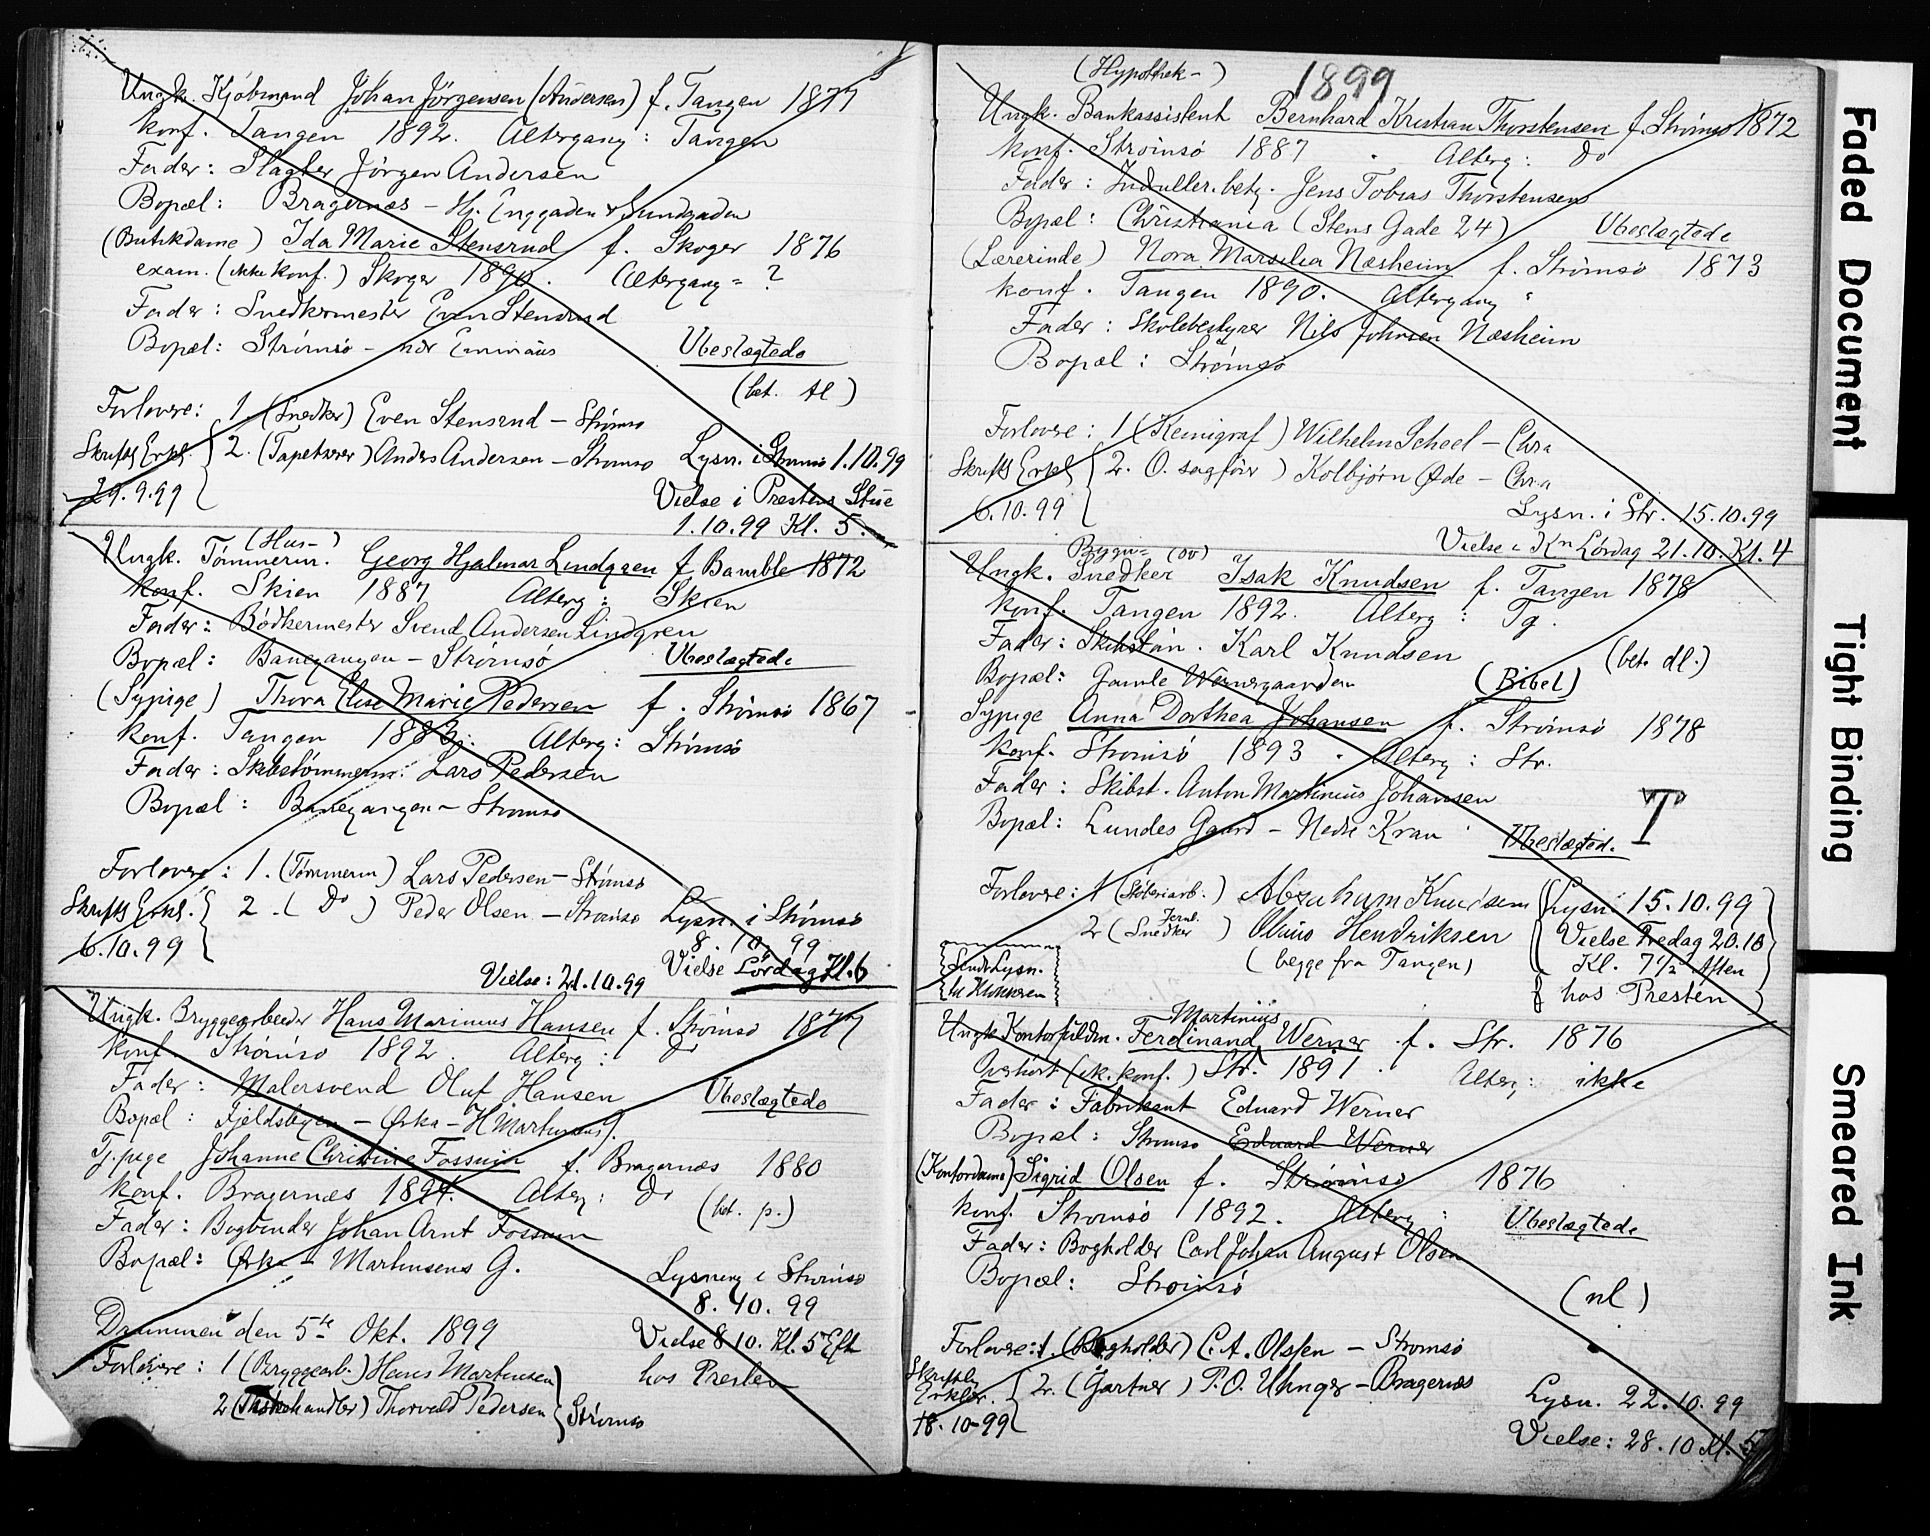 Ungk. Kjöbmand Johan Jörgensen (Andersen) f. Tangen 1877
Konf. Tangen 1892. Altergang: Tangen
Fader: Slagter Jörgen Andersen
Bopæl: Bragernæs - Hj. Enggaden & Sundgaden
(Butikdame) Ida Marie Stensrud f. Skoger 1876
exam. (ikke konf.) Skoger 1890. Altergang = ?
Fader: Snedkermester Even Stensrud
Bopæl: Strömsö - nær Emmaus Ubeslægtede
(bet. tl)
Forlovere: 1. (Snedker) Even Stensrud - Strömsö
Skriftl Erkl. 2. (Tapetserer) Anders Andersen - Strömsö Lysn. i Strömsö 1.10.99
29.9.99 Vielse i Prestens Stue
1.10.99 Kl. 5.
(Hus-)
Ungk. Tömmerm. Georg Hjalmar Lindgren f. Bamble 1872
Konf. Skien 1887 Alterg: Skien
Fader: Bödkermester Svend Andersen Lindgren
Bopæl: Banegangen - Strömsö Ubeslægtede
(Sypige) Thora Elise Marie Pedersen f. Strömsö 1867
Konf. Tangen 1883. Alterg: Strömsö
Fader: Skibstömmerm: Lars Pedersen
Bopæl: Banegangen - Strömsö
Forlovere: 1. (Tömmerm) Lars Pedersen - Strömsö
Skriftl Erkl. 2. (Do) Peder Olsen - Strömsö Lysn. i Strömsö
6.10.99 8.10.99
Vielse: 21.10.99 Vielse Lördag Kl. 6
Ungk. Bryggearbeider Hans Marinius Hansen f. Strömsö 1877
Konf. Strömsö 1892. Alterg: Do
Fader: Malersvend Oluf Hansen Ubeslægtede
Bopæl: Fjeldsbyen - Örka - H Martinsens G.
Tj.pige Johanne Christine Fossum f. Bragernæs 1880
Konf. Bragernæs 1894. Alterg: Do
(bet. p.)
Fader: Bogbinder Johan Arnt Fossum
Bopæl: Örka - Martinsens G.
Lysning i Strömsö
8.10.99
Drammen den 5te Okt. 1899 Vielse 8.10. Kl. 5 Eft
Forlovere: 1 (Bryggearb.) Hans Martinsen hos Presten
2 (Fiskehandler) Thorvald Pedersen Strömsö
(Hypothek-) 1899
Ungk. Bankassistent Bernhard Kristian Thorstensen f. Strömsö 1872
Konf. Strömsö 1887. Alterg: Do
Fader: Jens Tobias Thorstensen
Bopæl: Christiania (Stens Gade 24) Ubeslægtede
(Lærerinde) Nora Marselia Næsheim f. Strömsö 1873
Konf. Tangen 1890. Altergang "
Fader: Skolebestyrer Nils Johnsen Næsheim
Bopæl: Strömsö
Forlovere: 1 (Kemigraf) Wilhelm Scheel - Chra
Skriftl Erkl 2. O. sagförer) Kolbjörn Öde - Chra
6.10.99
Lysn. i Str. 15.10.99
Vielse i Kn Lördag 21.10. Kl. 4
Bygn= (ov)
Ungk. Snedker Isak Knudsen f. Tangen 1878
Konf. Tangen 1892. Alterg: Tg.
Fader: Skibstöm. Karl Knudsen (bet. dl.)
Bopæl: Gamle Wernergaarden (Bibel)
Sypige Anna Dorthea Johansen f. Strömsö 1878
Konf. Strömsö 1893. Alterg: Str.
Fader: Skibst. Anton Martinius Johansen
T
Bopæl: Lundes Gaard - Nedre Kran Ubeslægted.
Forlovere: 1 (Støberiarb.) Abraham Knudsen Lysn: 15.10.99
2 (Jernb. Snedker) Olaus Hendriksen Vielse Fredag 20.10
Send Lysn. (begge fra Tangen) Kl. 7½ Aften
til Klokkeren hos Presten
Martinius
Ungk Kontorfuldm. Ferdinand Werner f. Str. 1876
Overhört (ik. konf.) Str. 1891. Alterg: ikke
Fader: Fabrikant Eduard Werner
Bopæl: Strömsö Eduard Werner
(Kontordame) Sigrid Olsen f. Strömsö 1876
Konf. Strömsö 1892. Alterg: Ubeslægtede
Fader: Bogholder Carl Johan August Olsen
Bopæl: Strömsö
(nl)
Forlovere: 1. (Bogholder) C. A. Olsen - Strömsö
Skriftlig Erklær. 2. (Gartner) P. O. Unger - Bragernæs
18.10-99 Lysn. 22.10.99
Vielse: 28.10 Kl. 5
Faded Document
Tight Binding
Smeared Ink